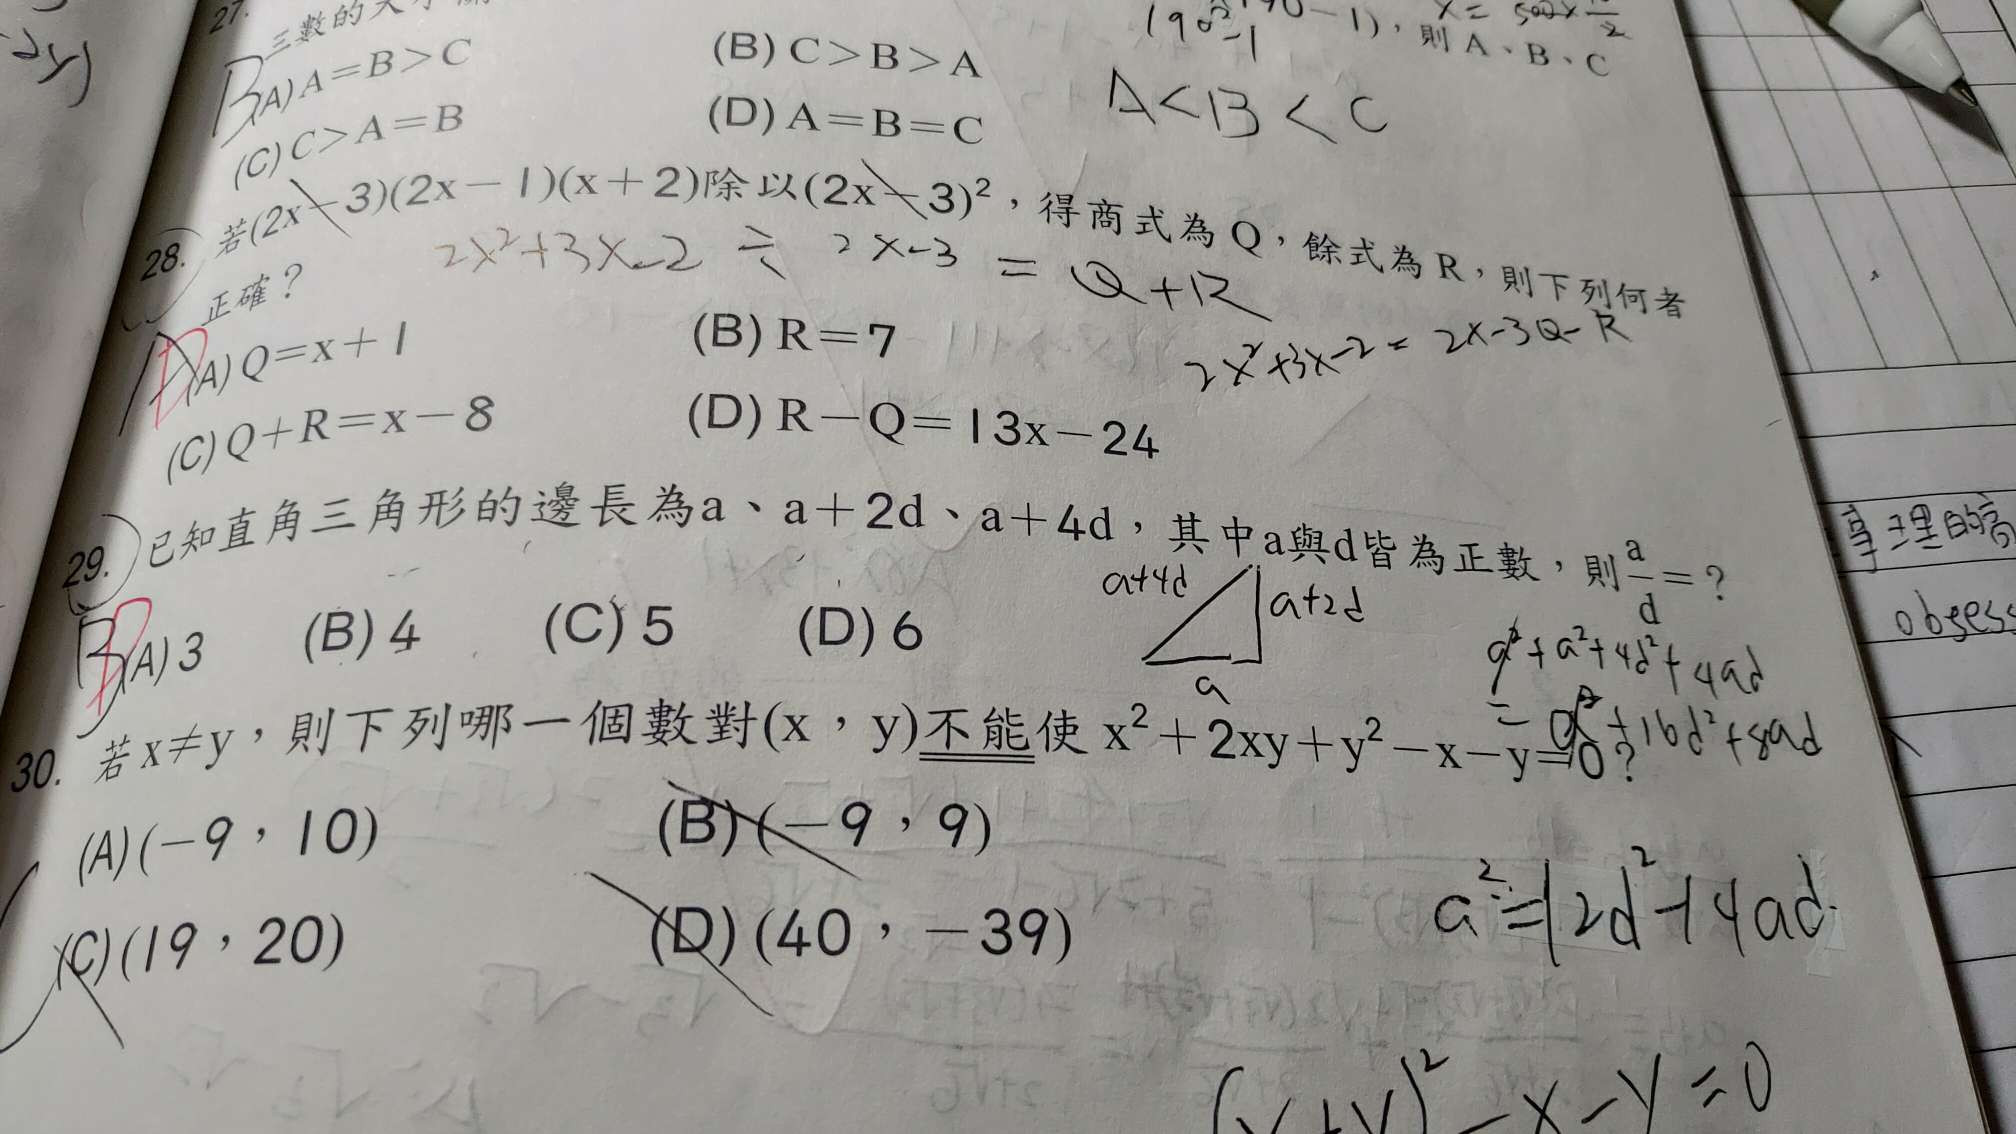 27.
三數的大小
(90²
-1
90-1)，則A、B、C
(A) A＝B＞C
(B) C＞B＞A
(C) C＞A＝B
(D) A＝B＝C
A<B<C
28. 若(2x－3)(2x－1)(x＋2)除以(2x－3)²，得商式為Q，餘式為R，則下列何者
正確？
2x²+3x-2 ÷ 2x-3 = Q+R
2x²+3x-2 = 2x-3Q-R
(A) Q＝x＋1
(B) R＝7
(C) Q＋R＝x－8
(D) R－Q＝13x－24
29. 已知直角三角形的邊長為a、a＋2d、a＋4d，其中a與d皆為正數，則a/d＝？
B (A) 3 (B) 4 (C) 5 (D) 6
a+4d
a+2d
a
a²+a²+4d²+4ad
= a²+16d²+8ad
30. 若x≠y，則下列哪一個數對(x，y)不能使x²＋2xy＋y²－x－y＝0？
(A) (－9，10)
(B) (－9，9)
(C) (19，20)
(D) (40，－39)
a²=12d²+4ad
(x+y)²-x-y=0
事理的高
obsess